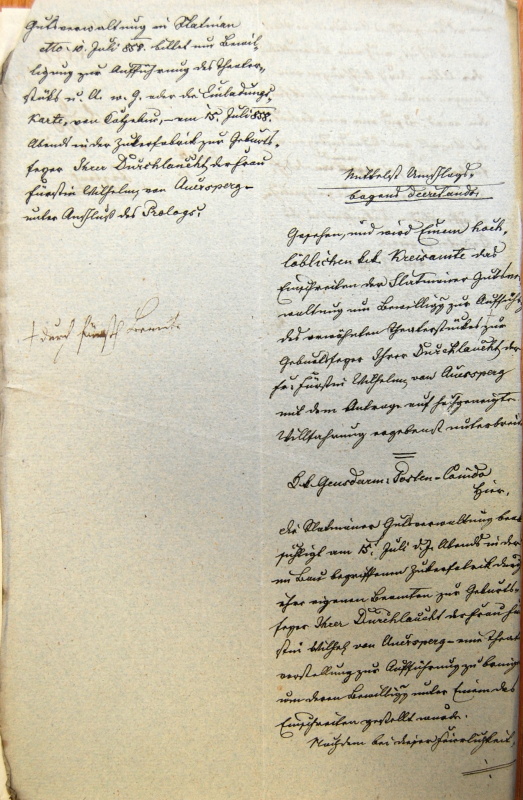 Gutsverwaltung in Slatinan
dto 10. Juli 858. bittet um Bewil-
ligung zur Aufführung des Theater-
stüks u. A. w. G. oder die Einladungs-
karte, von Kotzebue, am 15. Juli 858.
Abends in der Zukerfabrik zur Geburts-
feyer Ihrer Durchlaucht der Frau
Fürstin Wilhelm. von Auersperg
unter Anschluß des Prologs.
Mittelst Umschlags-
bogens
Gesehen, und wird Einem hoch-
löblichen k.k. Kreisamte das
Einschreiten der Slatinaner Gutsver-
waltung um Bewilligg zur Aufführg
des erwähnten Theaterstükes zur
Geburtsfeyer Ihrer Durchlaucht der
Fr. Fürstin Wilhelm. von Auersperg
mit dem Antrage auf hochgeneigte
Willfahrung ergebenst unterbreitet
K.k. Gensdarm: Posten-Comdo
Hier.
Die Slatinaner Gutsverwaltung beab-
sichtigt am 15. Juli d.J. Abends in der
im Bau begriffenen Zukerfabrik durch
ihre eigenen Beamten zur Geburts-
feyer Ihrer Durchlaucht der Frau Für-
stin Wilhel. von Auersperg eine Theater-
vorstellung zur Aufführung zu bringen
um deren Bewilligg unter Einem das
Einschreiten gestellt wurde.
Nachdem bei dieser Feierlichkeit